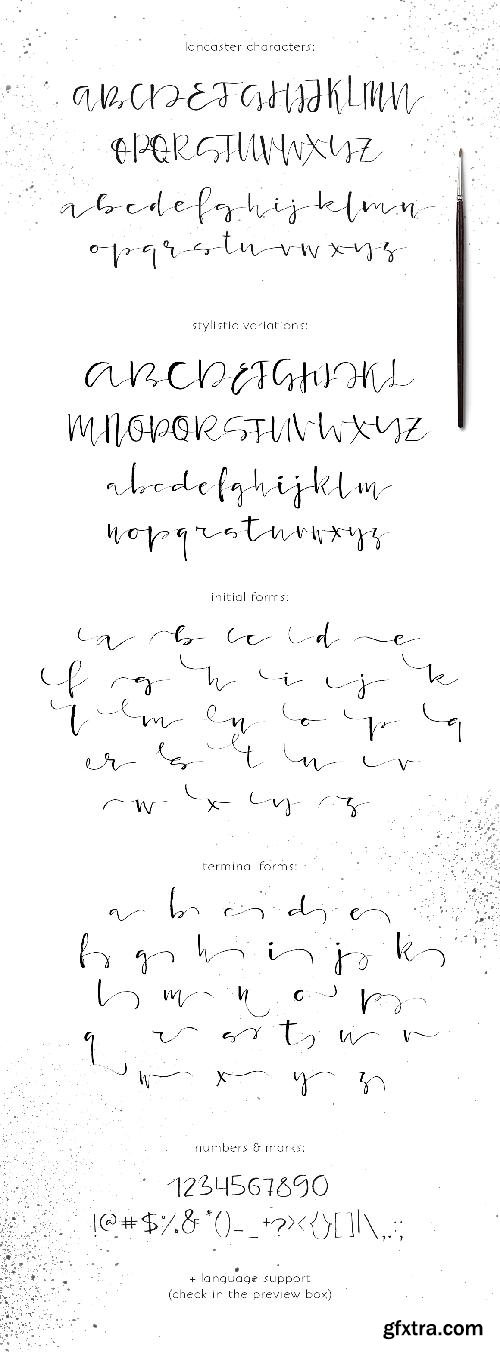 lancaster characters:
ABCDEFGHIJKLMN
OPQRSTUVWXYZ
abcdefghijklmn
opqrstuvwxyz
stylistic variations:
ABCDEFGHIJKL
MNOPQRSTUVWXYZ
abcdefghijklm
nopqrstuvwxyz
initial forms:
a b c d e
f g h i j k
l m n o p q
r s t u v
w x y z
terminal forms:
a b c d e
f g h i j k
l m n o p
q r s t u v
w x y z
numbers & marks:
1234567890
!@#$%&*()-_+?><{}[]|\,.:;
+ language support
(check in the preview box)
gfxtra.com